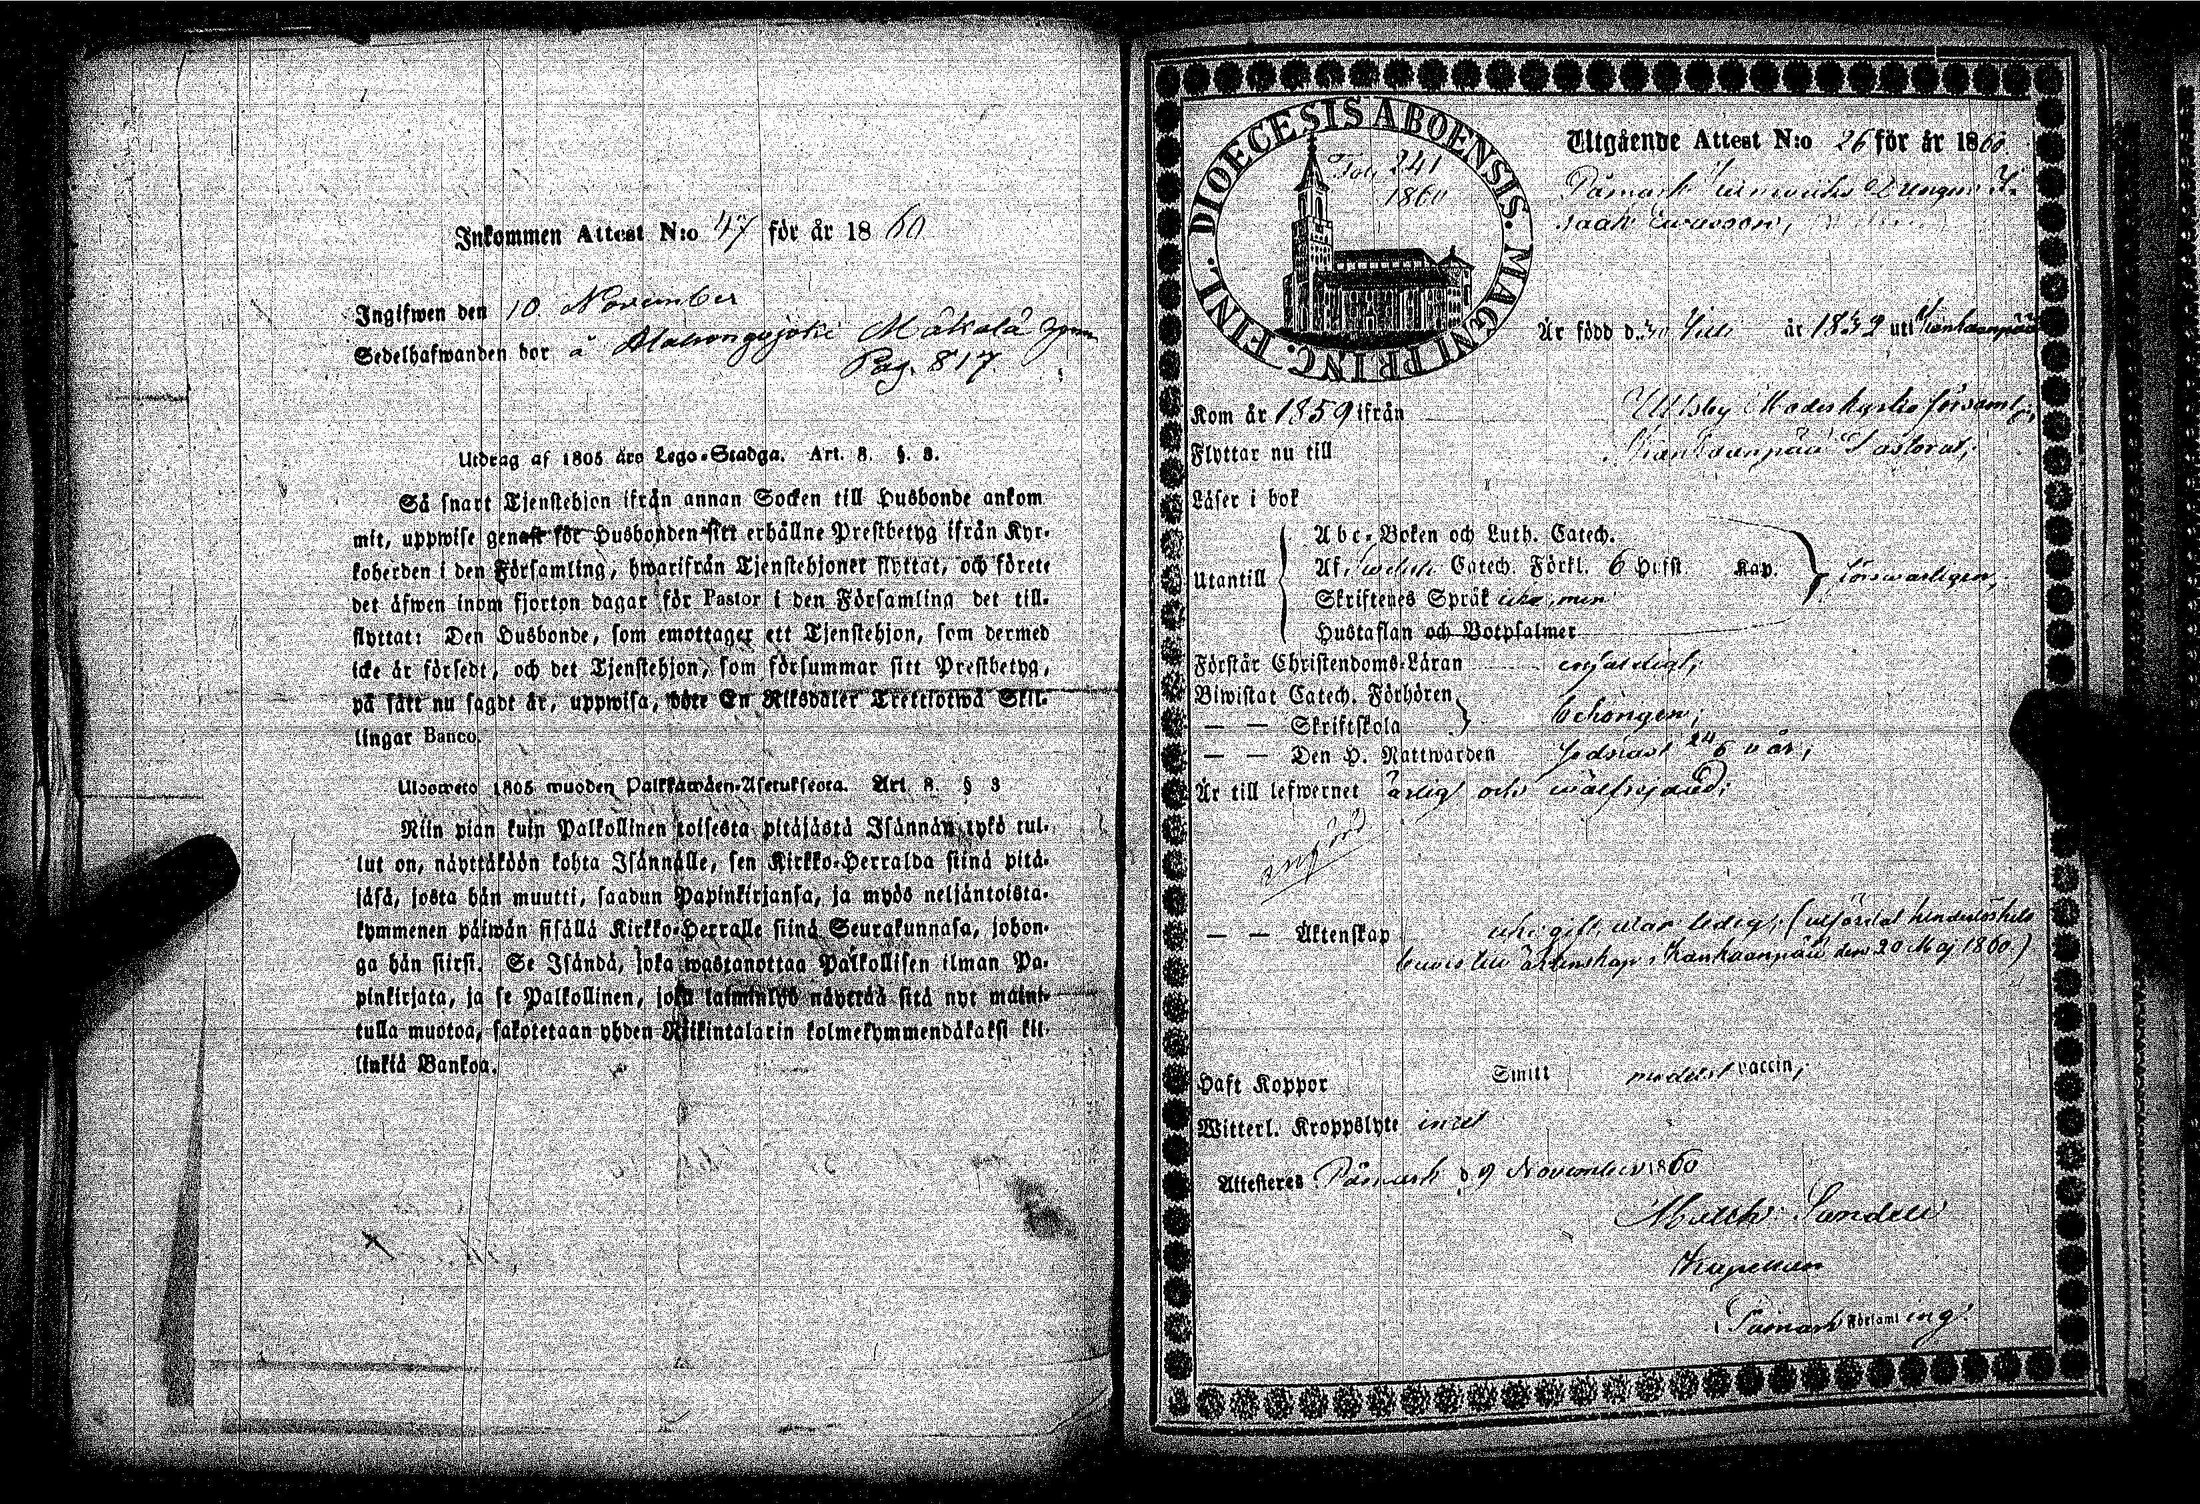 Inkommen Attest N:o 47 för år 1860
Ingifwen den 10 November
Sedelhafwanden bor å Mäkälä
Pag. 817.
Utdrag af 1805 års Lego-Stadga. Art. 8. §. 3.
Så snart Tjenstehjon ifrån annan Socken till Husbonde ankom
mit, uppwise genast för Husbonden sitt erhållne Prestbetyg ifrån Kyr-
koherden i den Församling, hwarifrån Tjenstehjonet flyttat, och förete
det äfwen inom fjorton dagar för Pastor i den Församling det till-
flyttat: Den Husbonde, som emottager ett Tjenstehjon, som dermed
icke är försedt, och det Tjenstehjon, som försummar sitt Prestbetyg,
på sätt nu sagdt är, uppwisa, böte En Riksdaler Trettiotwå Skil-
lingar Banco.
Ulosweto 1805 wuoden Palkkawäen-Asetuksesta. Art. 8. § 3
Niin pian kuin Palkollinen toisesta pitäjästä Isännän tykö tul-
lut on, näyttäköön kohta Isännälle, sen Kirkko-Herralda siinä pitä-
jäsä, josta hän muutti, saadun Papinkirjansa, ja myös neljäntoista-
kymmenen päiwän sisällä Kirkko-Herralle siinä Seurakunnasa, johon-
ga hän siirsi. Se Isändä, joka wastanottaa Palkollisen ilman Pa-
pinkirjata, ja se Palkollinen, joka laiminlyö näyttää sitä nyt maini-
tulla muotoa, sakotetaan yhden Riikintalarin kolmekymmendäkaksi kil-
linkiä Bankoa.
DIOECESIS ABOENSIS. MAGNI PRINC. FINL.
Fol. 241
1860
Utgående Attest N:o 26 för år 1860.
Påmark Drengen I-
saak
Är född d. 30 Juli år 1832 uti Kankaanpää
Kom år 1859 ifrån Ulfsby Moderkyrko församl.
Flyttar nu till Kankaanpää Pastorat;
Läser i bok
Utantill
Abc-Boken och Luth. Catech.
Af Svebilii Catech. Förkl. 6 Hufst. Kap. försvarligen;
Skriftenes Språk
Hustaflan och Botpsalmer
Förstår Christendoms-Läran enfaldigt;
Biwistat Catech. Förhören
— — Skriftskola behörigen;
— — Den H. Nattwarden sednast 24/6 d. år;
Är till lefwernet ärlig och wälfrejdad;
— — Äktenskap
till äktenskap i Kankaanpää den 20 Maj 1860.)
Haft Koppor Smitt medelst vaccin;
Witterl. Kroppslyte intet
Attesteras Påmark d. 9 November 1860
Matth: Sundell
Kapellan
Påmark Församling.